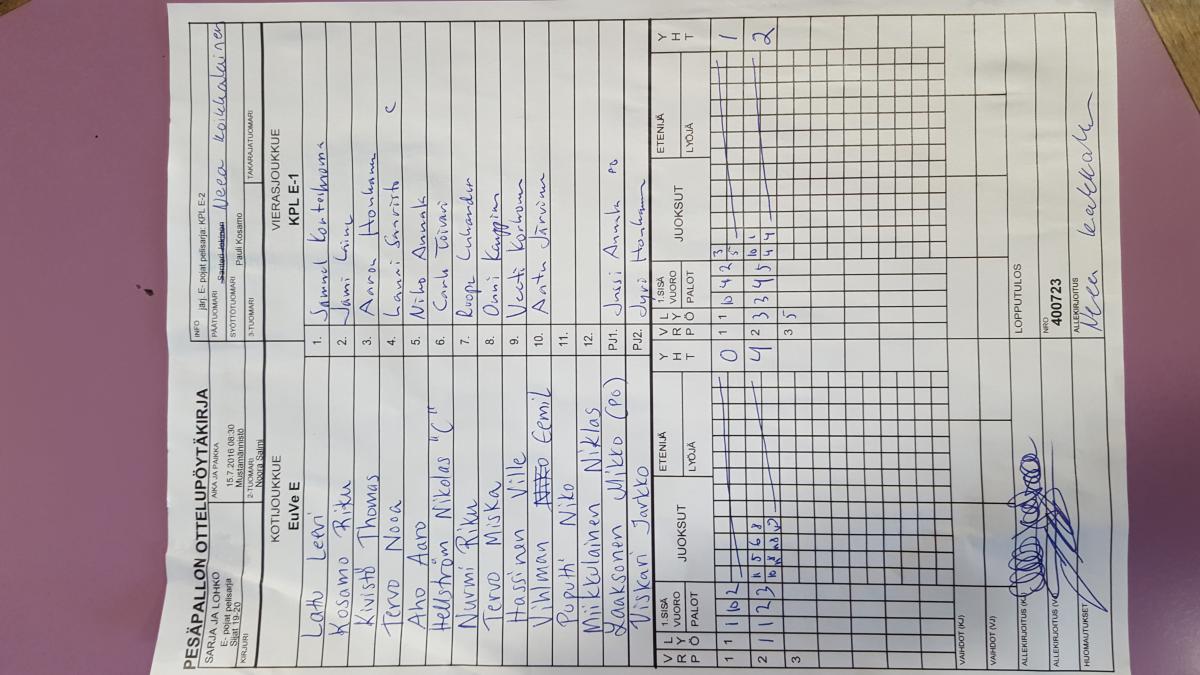 PESÄPALLON OTTELUPÖYTÄKIRJA
SARJA JA LOHKO
E- pojat pelisarja
Sijat 19-20
KIRJURI
AIKA JA PAIKKA
15.7.2016 08:30
Mustamännistö
2-TUOMARI
Noora Salmi
INFO järj. E- pojat pelisarja: KPL E-2
PÄÄTUOMARI Neea Koikkalainen
SYÖTTÖTUOMARI Pauli Kosamo
3-TUOMARI
TAKARAJATUOMARI
KOTIJOUKKUE
EuVe E
VIERASJOUKKUE
KPL E-1
Lattu Leevi 1. Samuel
Kosamo Riku 2. Jami Laine
Kivistö Thomas 3. Aaron Honkanen
Tervo Nooa 4. Lauri C
Aho Aaro 5. Niko Annala
Hellström Nikolas "C" 6. Toivari
Nurmi Riku 7. Roope
Tervo Miska 8. Onni
Hassinen Ville 9. Veeti Korhonen
Vihlman Eemil 10. Aatu Järvinen
Puputti Niko 11.
Miikkulainen Niklas 12.
Laaksonen Mikko (PO) PJ1. Jussi Annala PO
Viskari Jarkko PJ2. Jyri Honkanen
V R P L Y Ö 1.SISÄ VUORO PALOT JUOKSUT ETENIJÄ LYÖJÄ Y H T
V R P L Y Ö 1.SISÄ VUORO PALOT JUOKSUT ETENIJÄ LYÖJÄ Y H T
1 1 1 10 2 0 1 1 10 4 2 3 5 1
2 1 1 2 3 11 5 6 8 4 2 3 3 4 5 10 1 4 4 2
3 3 5
VAIHDOT (KJ)
VAIHDOT (VJ)
ALLEKIRJOITUS (KJ)
ALLEKIRJOITUS (VJ)
HUOMAUTUKSET
LOPPUTULOS
NRO
400723
ALLEKIRJOITUS
Neea